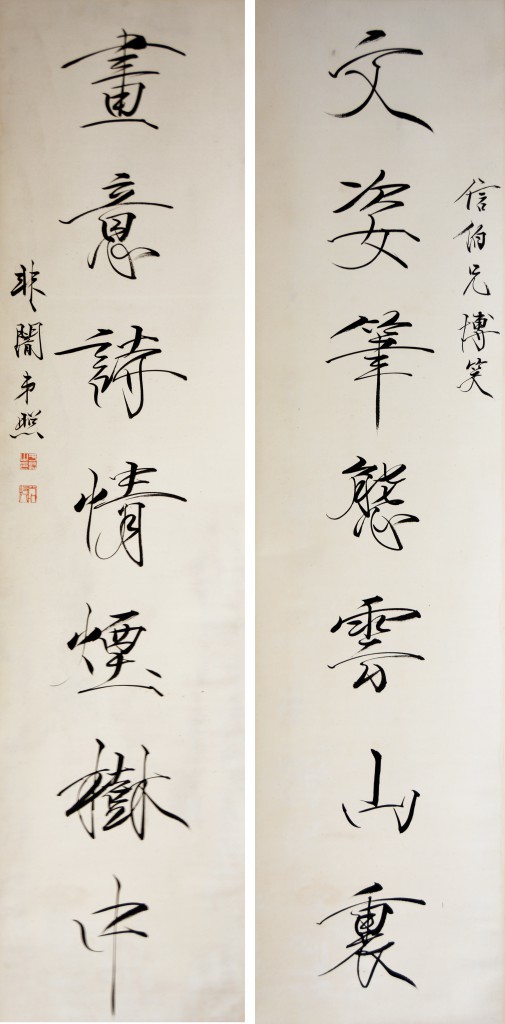 信伯兄博笑
文姿筆態雲山裏
畫意詩情煙樹中
非闇于照